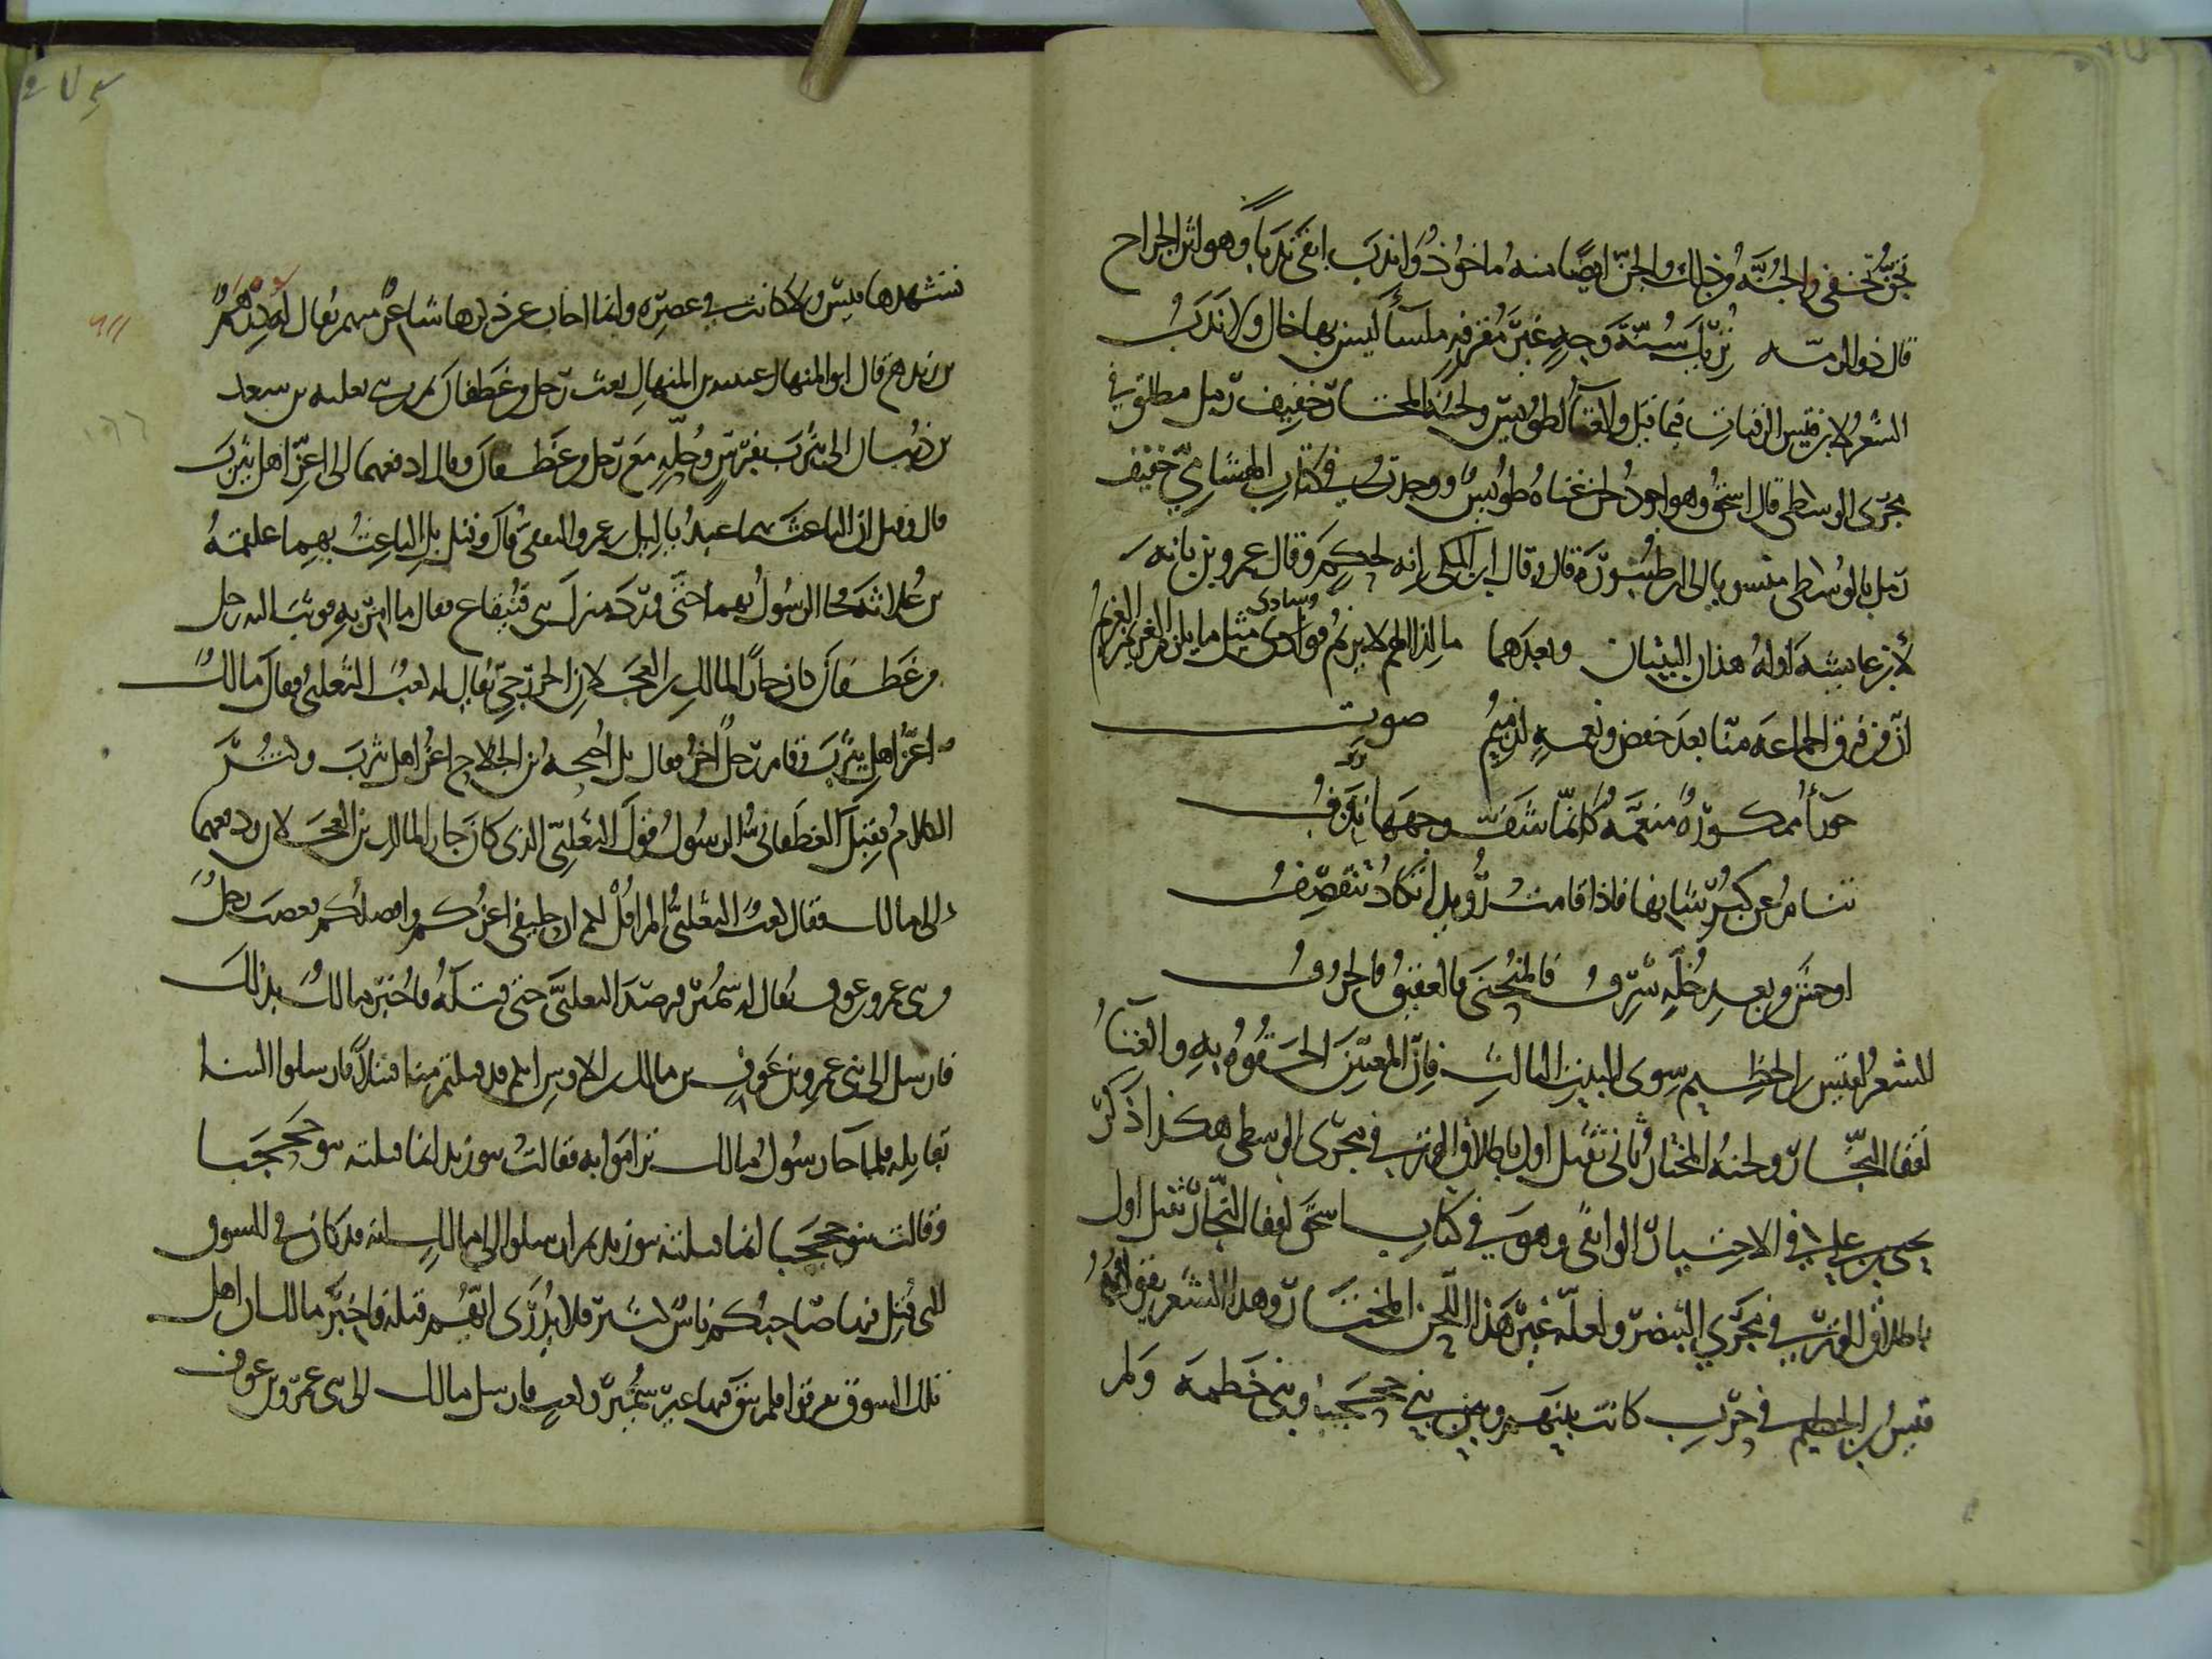 تجنّ تخفى والجُنّة من ذلك والجنّ ايضًا منه ماخوذ واندب ابقى ندبًا وهو اثر الجرح
قال ذو الرمّة تُريك سُنّة وجهٍ غير مُقرفةٍ ملسآ ليس بها خال ولا ندبُ
الشعر لابن قيس الرقيات فيما قيل والغنآ لطويس ولحنه المختار خفيف رمل مطلق في
مجرى الوسطى قال اسحق وهو اجود لحن غناه طويس ووجدته في كتاب الهشامي خفيف
رمل بالوسطى منسوبا الى ابن طنبورة قال وقال ابن المكى انه لحكم وقال عمرو بن بانة
لابن عايشة اوله هذان البيتان وبعدهما ما لذا الهم لا يريم فوادى مثل ما يلزم الغريم الغريم
وسادى
انّ من فرق الجماعة منّا بعد خفض ونعمةٍ لذميمُ صوت
حورآ ممكورة منعّمة كانّما شفّ وجهها نزفُ
تنام عن كبر شانها فاذا قامت رويدا تكاد تنقصفُ
اوحش من بعد خُلّةٍ سَرِفُ فالمنحنى فالعقيقُ فالجرفُ
الشعر لقيس بن الخطيم سوى البيت الثالث فان المغنين الحقوه به والغنآ
لقفا النجّار ولحنه المختار ثانى ثقيل اول باطلاق الوتر في مجرى الوسطى هكذا ذكر
يحيى بن علي في الاختيار الواثقى وهو في كتاب اسحق لقفا النجّار ثقيل اول
باطلاق الوتر في مجرى البنصر ولعلّه غير هذا اللحن المختار وهذا الشعر يقوله
قيسُ بن الخطيم في حرب كانت بينهم وبين بني جحجبا وبني خطمة ولم
يشهدها قيس ولا كانت في عصره وانما اجاب عن ذكرها شاعرًا منهم يقال له درهم
بن زيد قال ابو المنهال عيينة بن المنهال بعث رجل من غطفان من بنى ثعلبة بن سعد
بن ذبيان الى يثرب بفرس وحُلّةٍ مع رجل من غطفان وقال ادفعهما الى اعزّ اهل يثرب
قال وقيل ان الباعث بهما عبد ياليل بن عمرو الثقفى قال وقيل بل الباعث بهما علقمة
بن عُلاثة فجا الرسول بهما حتّى ورد سوق بنى قينقاع فقال ما امر به فوثب اليه رجل
من غطفان كان جارًا لمالك بن العجلان الخزرجى يقال له كعب الثعلبى فقال مالك
اعزّ اهل يثرب وقام رجل اخر فقال بل احيحة بن الجلاح اعز اهل يثرب وكثر
الكلام فقبل الرسول الغطفانى قول الثعلبى الذى كان جارًا لمالك بن العجلان ودفعهما
الى مالك فقال كعب الثعلبى الم اقل لكم ان حليفى اعزكم وافضلكم فغضب رجل
من بنى عمرو بن عوف يقال له سُمَير فرصد الثعلبى حتى قتله فاُخبر مالك بذلك
فارسل الى بنى عمرو بن عوف بن مالك بن الاوس انكم قد قتلتم منا قتيلًا فارسلوا الينا
بقاتله فلما جا رسول مالك تراموا به فقالت بنو زيد انما قتلته بنو جحجبا
وقالت بنو جحجبا انما قتلته بنو زيد ثم ارسلوا الى مالك انه قد كان فى السوق
التى قُتل فيها صاحبكم ناس كثير ولا يُدرى ايّهم قتله فاخبر مالك ان اهل
تلك السوق تفرقوا فلم يبق فيها غير سُمير وكعب فارسل مالك الى بنى عمرو بن عوف